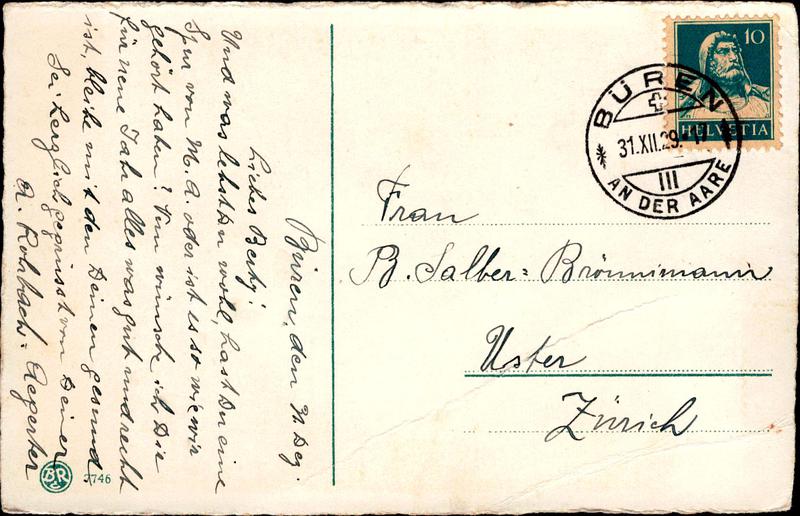 Büren, den 31. Dez.
Liebes Bethj!
Und was lebst du wohl, hast Du eine
Spur von M. A. oder ist es so wie wir
gehört haben? Nun wünsche ich Dir
für neue Jahr alles was gut und recht
ist, bleibe mit den Deinen gesund
Sei herzlich gegrüsst von Deiner
R. Rohbach-Aegerter
BR
3746
10
HELVETIA
BÜREN
31.XII.29.-17
III
AN DER AARE
Frau
B. Salber-Brönnimann
Uster
Zürich